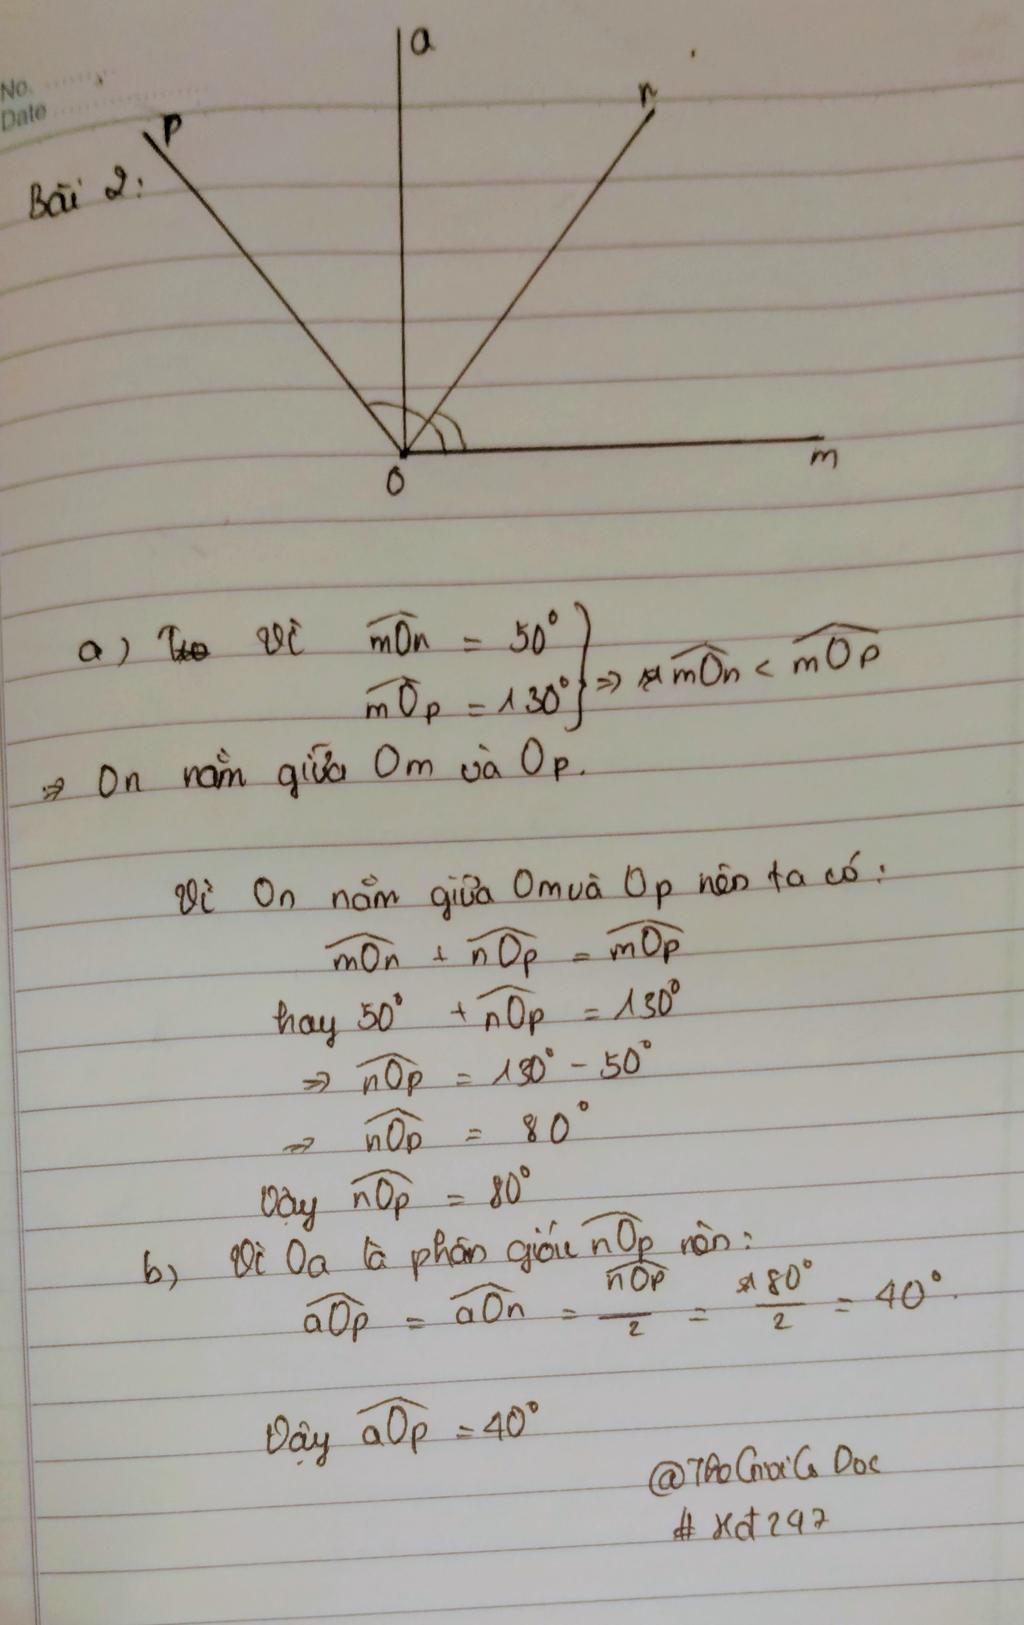 No.
Date
a
n
p
Bài 2:
m
O
a) Vì mOn = 50°
mOp = 130° ⇒ mOn < mOp
⇒ On nằm giữa Om và Op.
Vì On nằm giữa Om và Op nên ta có:
mOn + nOp = mOp
hay 50° + nOp = 130°
⇒ nOp = 130° - 50°
⇒ nOp = 80°
Vậy nOp = 80°
b) Vì Oa là phân giác nOp nên:
aOp = aOn = nOp/2 = 80°/2 = 40°.
Vậy aOp = 40°